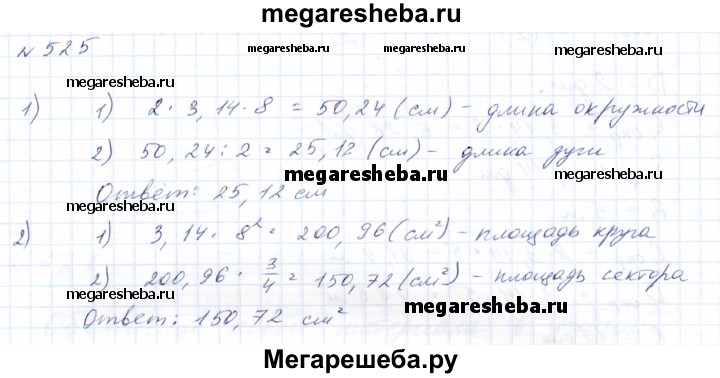 megaresheba.ru
№ 525
megaresheba.ru megaresheba.ru
megaresheba.ru
1) 1) 2 · 3,14 · 8 = 50,24 (см) - длина окружности
2) 50,24 : 2 = 25,12 (см) - длина дуги
megaresheba.ru
Ответ: 25,12 см
megaresheba.ru
2) 1) 3,14 · 8² = 200,96 (см²) - площадь круга
2) 200,96 · 3/4 = 150,72 (см²) - площадь сектора
megaresheba.ru
megaresheba.ru
Ответ: 150,72 см²
Мегарешеба.ру